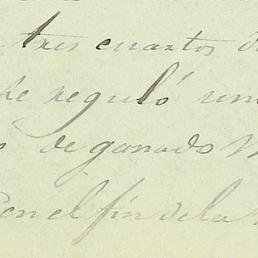 tres cuartos d
se reguló un
de ganado
con el fin de la